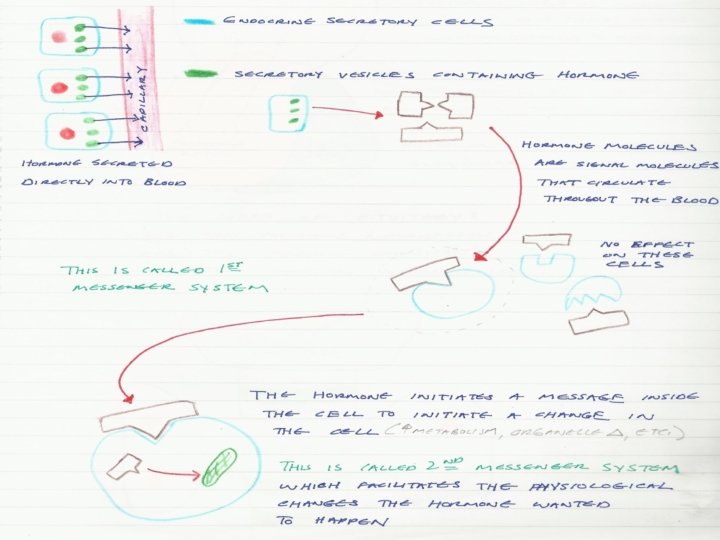 ENDOCRINE SECRETORY CELLS
SECRETORY VESICLES CONTAINING HORMONE
CAPILLARY
HORMONE SECRETED
DIRECTLY INTO BLOOD
HORMONE MOLECULES
ARE SIGNAL MOLECULES
THAT CIRCULATE
THROUGOUT THE BLOOD
NO EFFECT
ON THESE
CELLS
THIS IS CALLED 1ST
MESSENGER SYSTEM
THE HORMONE INITIATES A MESSAGE INSIDE
THE CELL TO INITIATE A CHANGE IN
THE CELL (↑METABOLISM, ORGANELLE Δ, ETC.)
THIS IS CALLED 2ND MESSENGER SYSTEM
WHICH FACILITATES THE PHYSIOLOGICAL
CHANGES THE HORMONE WANTED
TO HAPPEN